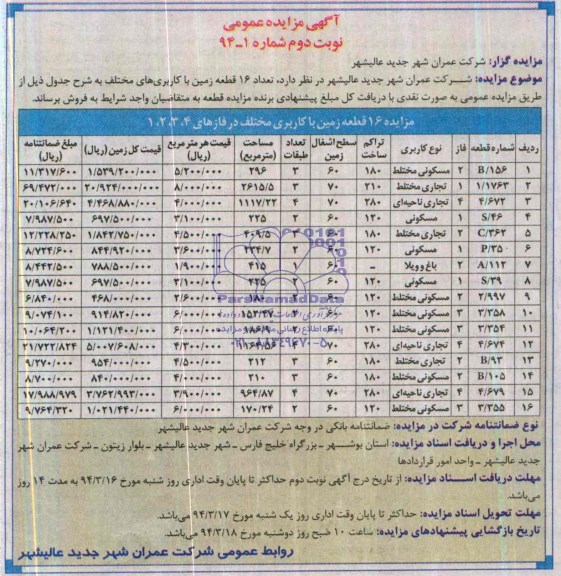 آگهی مزایده عمومی
نوبت دوم شماره ۱-۹۴
مزایده گزار: شرکت عمران شهر جدید عالیشهر
موضوع مزایده: شرکت عمران شهر جدید عالیشهر در نظر دارد، تعداد ۱۶ قطعه زمین با کاربری‌های مختلف به شرح جدول ذیل از
طریق مزایده عمومی به صورت نقدی با دریافت کل مبلغ پیشنهادی برنده مزایده قطعه به متقاضیان واجد شرایط به فروش برساند.
مزایده ۱۶ قطعه زمین با کاربری مختلف در فازهای ۱،۲،۳،۴
ردیف شماره قطعه فاز نوع کاربری تراکم ساخت سطح اشغال زمین تعداد طبقات مساحت (مترمربع) قیمت هر متر مربع (ریال) قیمت کل زمین (ریال) مبلغ ضمانتنامه (ریال)
۱ B/۱۵۶ ۲ مسکونی مختلط ۱۸۰ ۶۰ ۳ ۲۹۶ ۵/۲۰۰/۰۰۰ ۱/۵۳۹/۲۰۰/۰۰۰ ۱۱/۳۱۷/۶۰۰
۲ ۱/۱۷۶۳ ۱ تجاری مختلط ۲۱۰ ۷۰ ۳ ۲۶۱۵/۵ ۸/۰۰۰/۰۰۰ ۲۰/۹۲۴/۰۰۰/۰۰۰ ۶۹/۴۷۲/۰۰۰
۳ ۴/۶۷۲ ۴ تجاری ناحیه‌ای ۲۸۰ ۷۰ ۴ ۱۱۱۷/۲۲ ۴/۰۰۰/۰۰۰ ۴/۴۶۸/۸۸۰/۰۰۰ ۲۰/۱۰۶/۶۴۰
۴ S/۴۶ ۱ مسکونی ۱۲۰ ۶۰ ۲ ۲۲۵ ۳/۱۰۰/۰۰۰ ۶۹۷/۵۰۰/۰۰۰ ۷/۹۸۷/۵۰۰
۵ C/۳۶۲ ۲ تجاری مختلط ۱۸۰ ۶۰ ۳ ۴۰۹/۵ ۴/۵۰۰/۰۰۰ ۱/۸۴۲/۷۵۰/۰۰۰ ۱۲/۲۲۸/۲۵۰
۶ P/۳۵۰ ۱ مسکونی ۱۲۰ ۶۰ ۲ ۲۳۴/۷ ۳/۶۰۰/۰۰۰ ۸۴۴/۹۲۰/۰۰۰ ۸/۷۲۴/۶۰۰
۷ A/۱۱۲ ۲ باغ و ویلا – ۶۰ ۱ ۴۱۵ ۱/۹۰۰/۰۰۰ ۷۸۸/۵۰۰/۰۰۰ ۸/۴۴۲/۵۰۰
۸ S/۳۹ ۱ مسکونی ۱۲۰ ۶۰ ۲ ۲۲۵ ۳/۱۰۰/۰۰۰ ۶۹۷/۵۰۰/۰۰۰ ۷/۹۸۷/۵۰۰
۹ ۲/۹۹۷ ۲ مسکونی مختلط ۱۲۰ ۶۰ ۲ ۱۸۰ ۲/۶۰۰/۰۰۰ ۴۶۸/۰۰۰/۰۰۰ ۶/۸۴۰/۰۰۰
۱۰ ۳/۳۵۸ ۳ مسکونی مختلط ۱۲۰ ۶۰ ۲ ۱۵۲/۴۷ ۶/۰۰۰/۰۰۰ ۹۱۴/۸۲۰/۰۰۰ ۹/۰۷۴/۱۰۰
۱۱ ۳/۳۵۴ ۳ مسکونی مختلط ۱۲۰ ۶۰ ۲ ۱۸۶/۹ ۶/۰۰۰/۰۰۰ ۱/۱۲۱/۴۰۰/۰۰۰ ۱۰/۰۶۴/۲۰۰
۱۲ ۴/۶۷۴ ۴ تجاری ناحیه‌ای ۲۸۰ ۷۰ ۴ ۱۱۶۴/۵۶ ۴/۳۰۰/۰۰۰ ۵/۰۰۷/۶۰۸/۰۰۰ ۲۱/۷۲۲/۸۲۴
۱۳ B/۹۳ ۲ تجاری مختلط ۱۸۰ ۶۰ ۳ ۲۱۲ ۴/۵۰۰/۰۰۰ ۹۵۴/۰۰۰/۰۰۰ ۹/۲۷۰/۰۰۰
۱۴ B/۱۰۵ ۲ مسکونی مختلط ۱۸۰ ۶۰ ۳ ۲۱۰ ۴/۰۰۰/۰۰۰ ۸۴۰/۰۰۰/۰۰۰ ۸/۷۰۰/۰۰۰
۱۵ ۴/۶۷۹ ۴ تجاری ناحیه‌ای ۲۸۰ ۷۰ ۴ ۹۶۴/۸۷ ۳/۹۰۰/۰۰۰ ۳/۷۶۲/۹۹۳/۰۰۰ ۱۷/۹۸۸/۹۷۹
۱۶ ۳/۳۵۵ ۳ مسکونی مختلط ۱۲۰ ۶۰ ۲ ۱۷۰/۲۴ ۶/۰۰۰/۰۰۰ ۱/۰۲۱/۴۴۰/۰۰۰ ۹/۷۶۴/۳۲۰
ParsNamadData
۰۲۱-۸۸۳۴۹۶۷۰-۵
نوع ضمانتنامه شرکت در مزایده: ضمانتنامه بانکی در وجه شرکت عمران شهر جدید عالیشهر
محل اجرا و دریافت اسناد مزایده: استان بوشهر – بزرگراه خلیج فارس – شهر جدید عالیشهر – بلوار زیتون – شرکت عمران شهر
جدید عالیشهر – واحد امور قراردادها
مهلت دریافت اسناد مزایده: از تاریخ درج آگهی نوبت دوم حداکثر تا پایان وقت اداری روز شنبه مورخ ۹۴/۳/۱۶ به مدت ۱۴ روز
می‌باشد.
مهلت تحویل اسناد مزایده: حداکثر تا پایان وقت اداری روز یک شنبه مورخ ۹۴/۳/۱۷ می‌باشد.
تاریخ بازگشایی پیشنهادهای مزایده: ساعت ۱۰ صبح روز دوشنبه مورخ ۹۴/۳/۱۸ می‌باشد.
روابط عمومی شرکت عمران شهر جدید عالیشهر